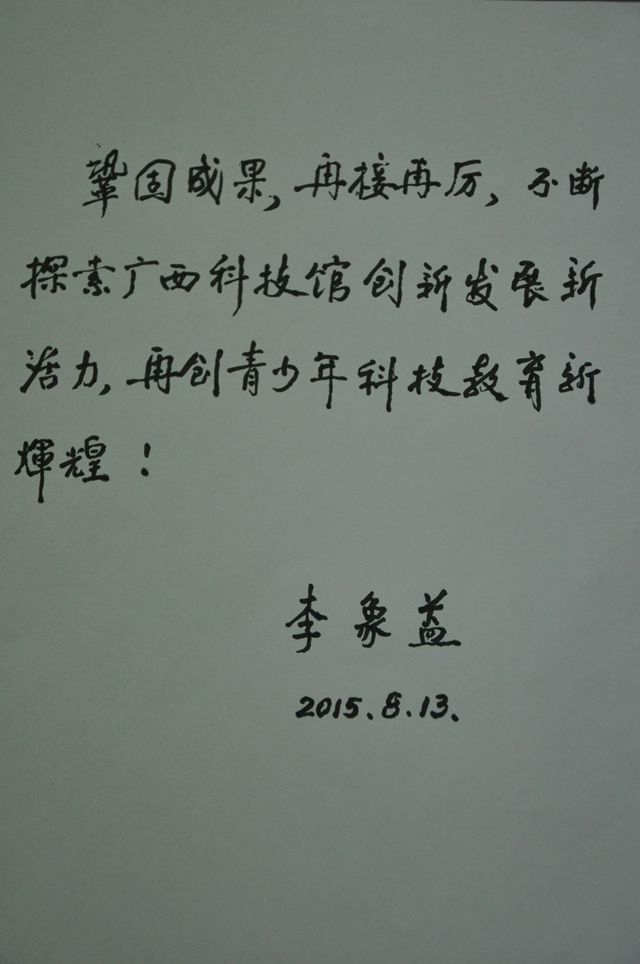 巩固成果，再接再厉，不断
探索广西科技馆创新发展新
活力，再创青少年科技教育新
辉煌！
李象益
2015.8.13.